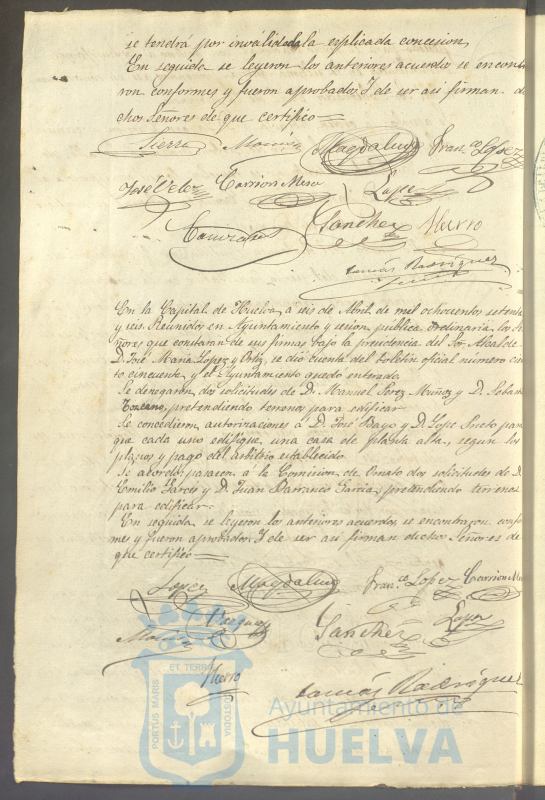 se tendrá por inválidada la esplicada concesion,
En seguida se leyeron los anteriores acuerdos se encont
ron conformes y fueron aprobados. Y de ser asi firman di
chos Señores de que certifico=
Sierra Magdalena Fran.co Lopez
José Veloz Carrion Mero Lope
Sanchez Hierro
Tomás Rodriguez
En la Capital de Huelva á seis de Abril de mil ochocientos setenta
y seis. Reunidos en Ayuntamiento y sesion publica ordinaria, los Se
ñores que constaran de sus firmas bajo la presidencia del Sor. Alcalde
D. José Maria Lopez y Ortiz, se dió cuenta del boletin oficial número cien
to cincuenta y el Ayuntamiento quedó enterado.
Se denegaron dos solicitudes de D. Manuel Perez Muñoz y D. Sebast
Toscano, pretendiendo terrenos para edificar.
Se concedieron autorizaciones á D. José Bayo y D. Lope Prieto para
que cada uno edifique, una casa de planta alta, segun los
plazos y pago del arbitrio establecido.
Se acordó pasaran á la Comision de Ornato dos solicitudes de D.
Emilio Garces y D. Juan Barranco Garcia, pretendiendo terrenos
para edificar.
En seguida se leyeron los anteriores acuerdos, se encontraron confor
mes y fueron aprobados. Y de ser asi firman dichos Señores de
que certifico=
Lopez Magdalena Fran.co Lopez Carrion Mero
Vazquez Sanchez Lope
Hierro Tomás Rodriguez
ET TERRÆ
PORTUS MARIS
CUSTODIA
Ayuntamiento de
HUELVA